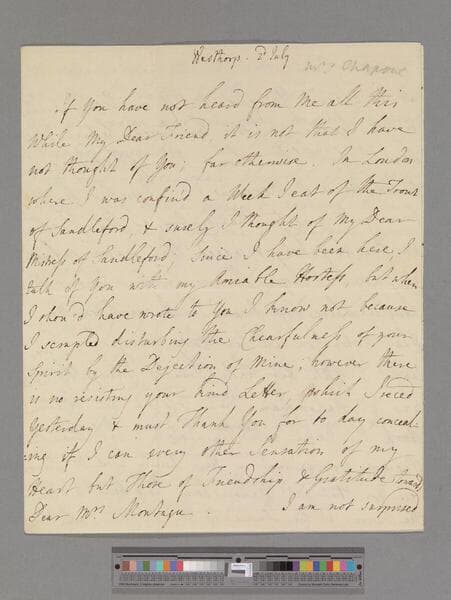 Hasthorp. 2d July
Mrs Chapone
If You have not heard from Me all this
While My Dear Friend it is not that I have
not thought of You; far otherwise. In London
where I was confin'd a Week I eat of the Trout
of Sandleford, & surely I thought of My Dear
Mistress of Sandleford; Since I have been here, I
talk of You with my Amiable Hostess but when
I shou'd have wrote to You I know not because
I scrupled disturbing the Chearfulness of your
Spirit by the Dejection of Mine; however there
is no resisting your kind Letter which I reced
yesterday & must Thank You for to day conceal-
-ing if I can every other Sensation of my
Heart but Those of Friendship & Gratitude toward
Dear Mrs Montagu. I am not surprised